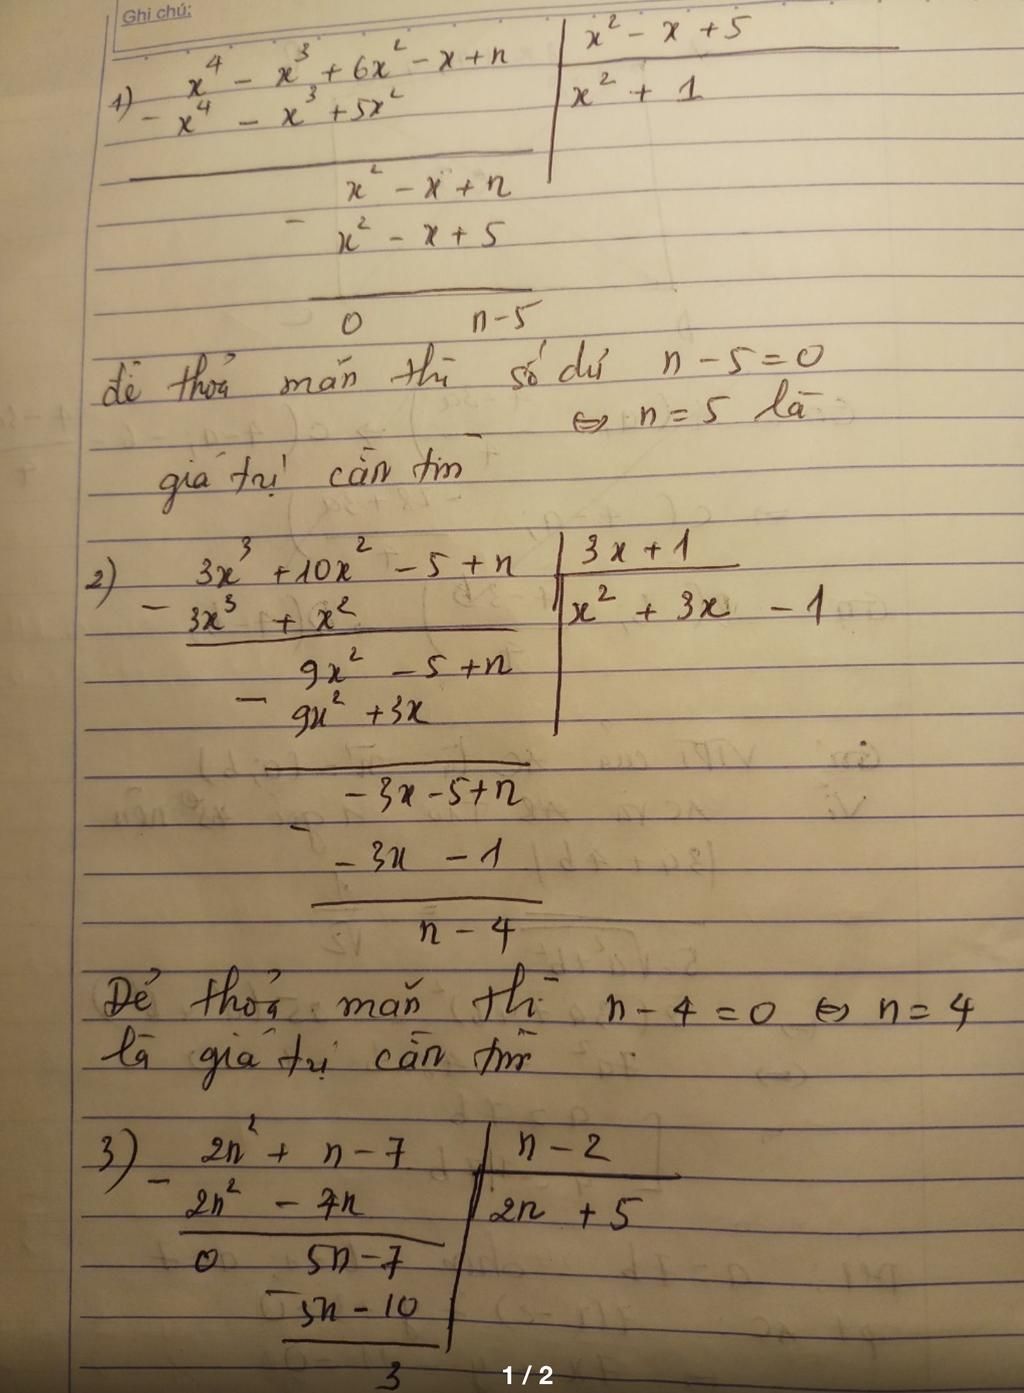 Ghi chú:
1) x⁴ - x³ + 6x² - x + n | x² - x + 5
- x⁴ - x³ + 5x² | x² + 1
x² - x + n
- x² - x + 5
0 n - 5
để thoả mãn thì số dư n - 5 = 0
⇔ n = 5 là
giá trị cần tìm
2) 3x³ + 10x² - 5 + n | 3x + 1
- 3x³ + x² | x² + 3x - 1
9x² - 5 + n
- 9x² + 3x
- 3x - 5 + n
- - 3x - 1
n - 4
Để thoả mãn thì n - 4 = 0 ⇔ n = 4
là giá trị cần tìm
3) 2n² + n - 7 | n - 2
- 2n² - 4n | 2n + 5
0 5n - 7
- 5n - 10
3
1 / 2